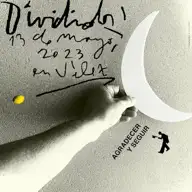 Divididos!
13 de mayo,
2023
en Vélez
AGRADECER
Y SEGUIR